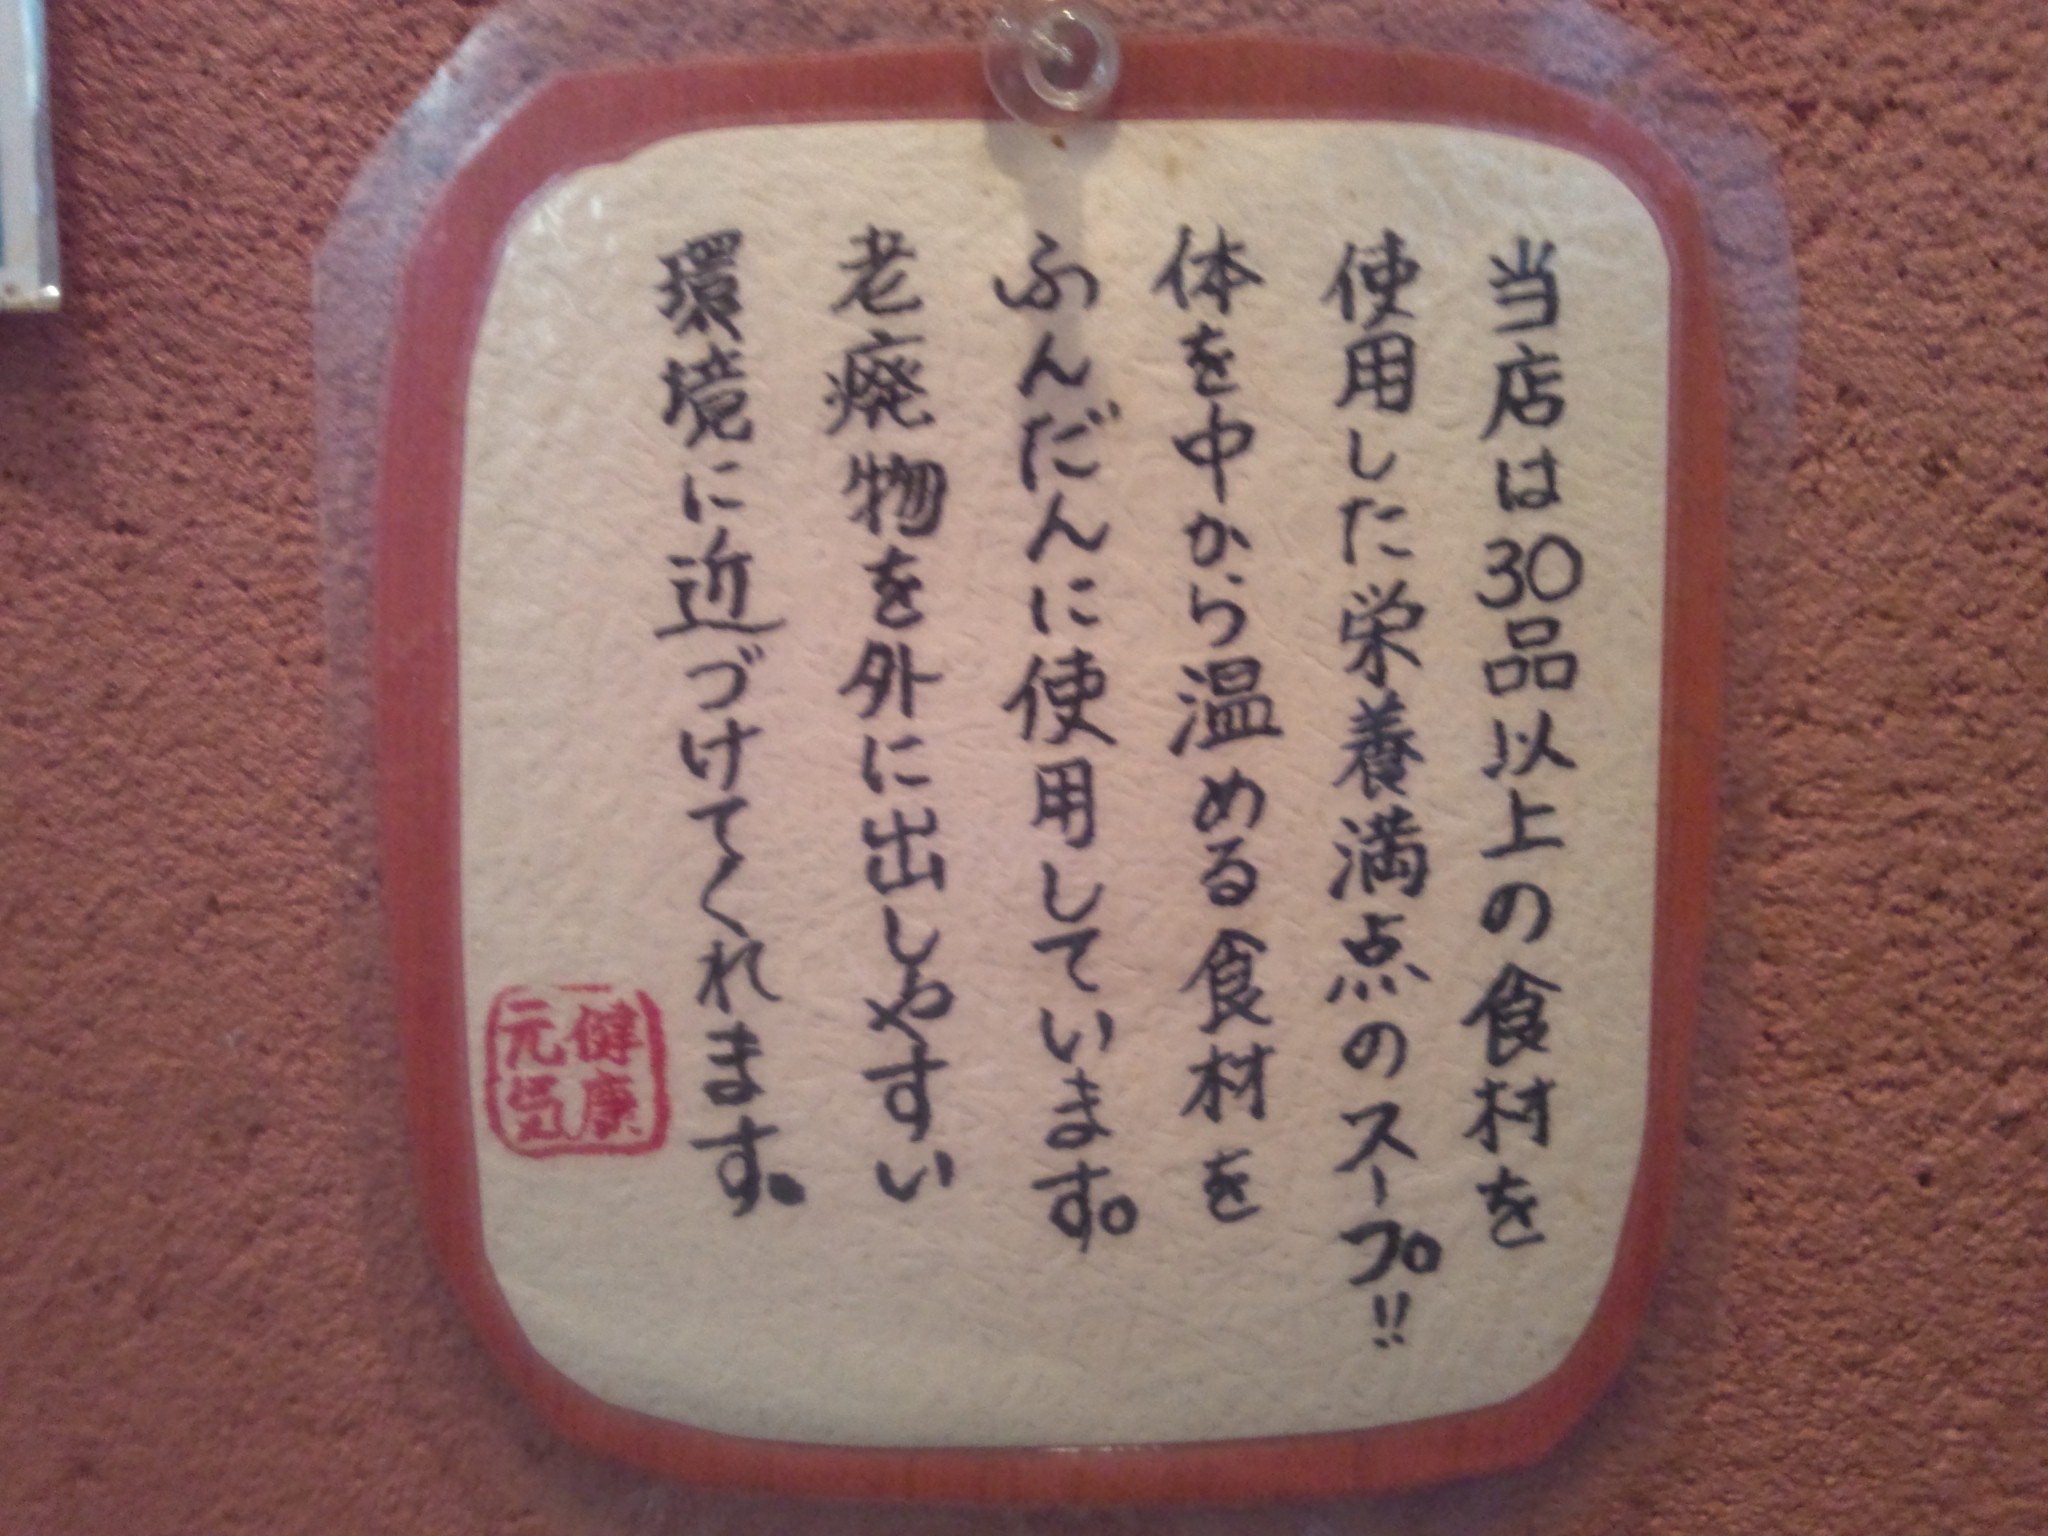 当店は30品以上の食材を
使用した栄養満点のスープ!!
体を中から温める食材を
ふんだんに使用しています。
老廃物を外に出しやすい
環境に近づけてくれます。
健康
元気